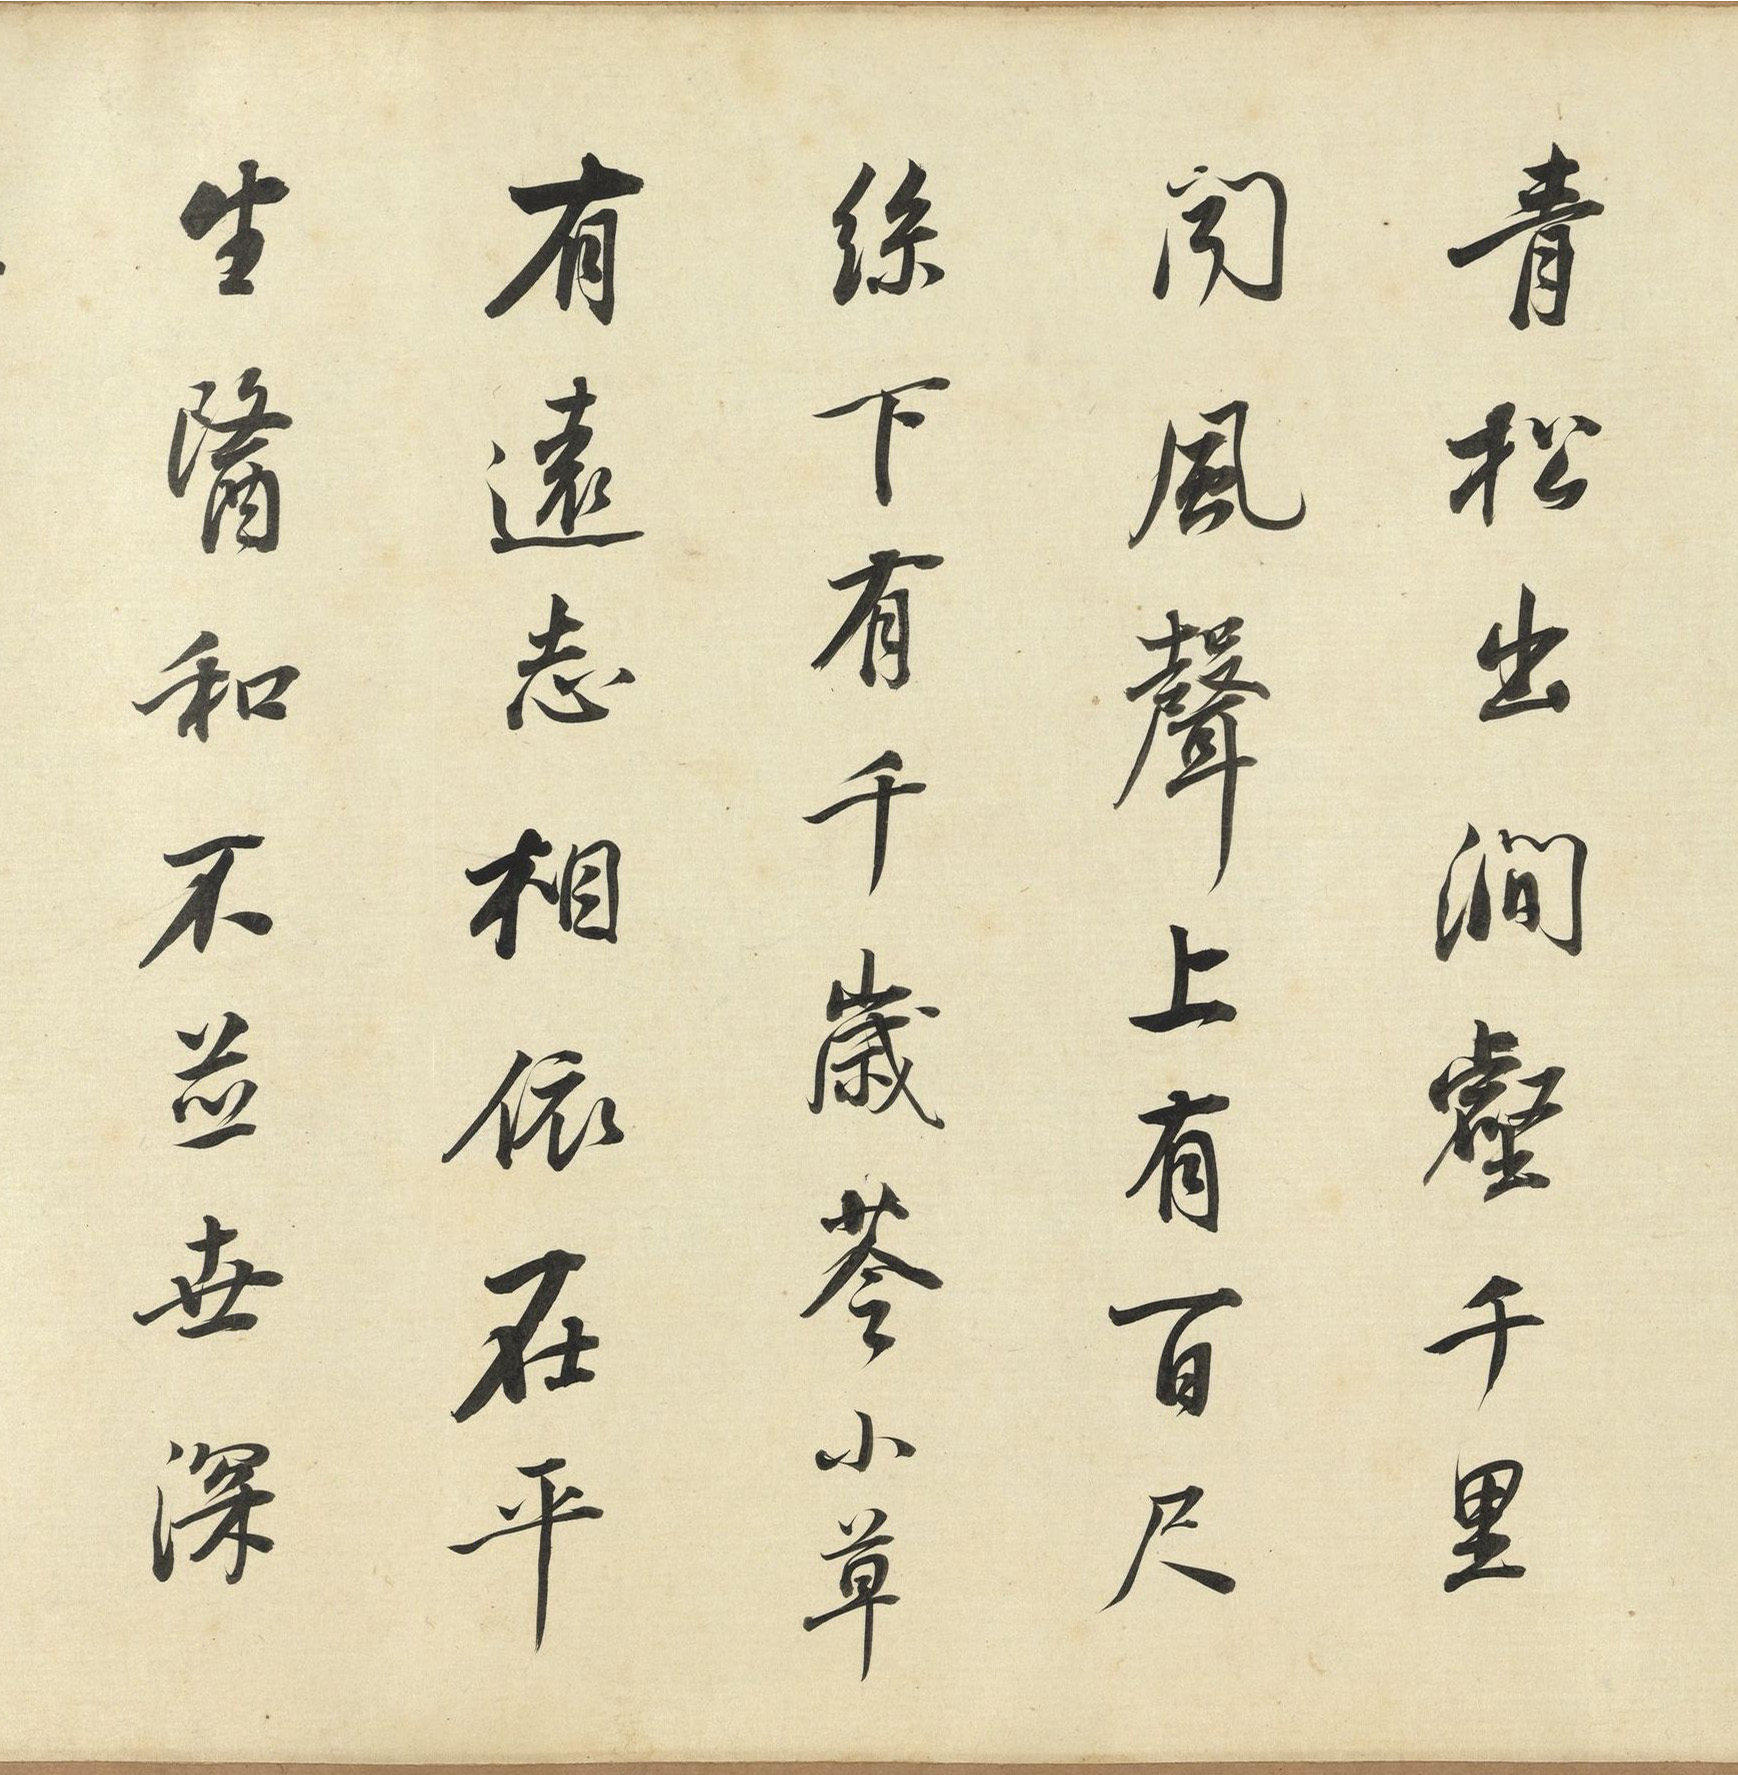 青松出澗壑千里
聞風聲上有百尺
絲下有千歲苓小草
有遠志相依在平
生醫和不並世深